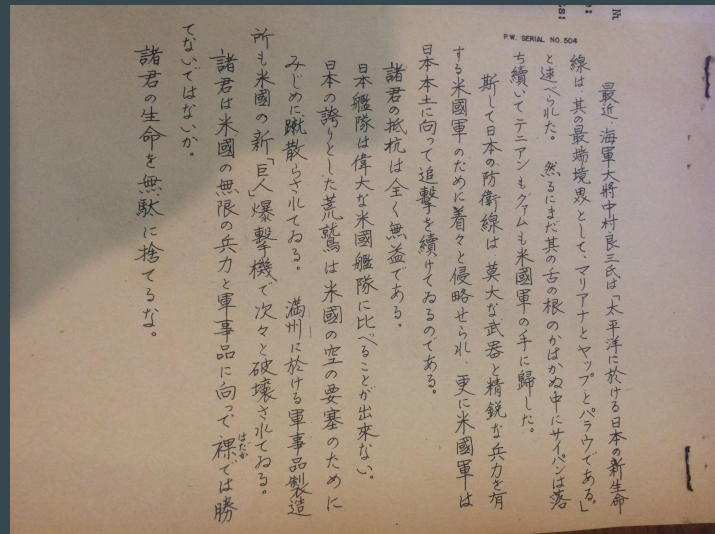 P.W. SERIAL NO. 504
最近、海軍大將中村良三氏は「太平洋に於ける日本の新生命
線は、其の最端境界として、マリアナとヤップとパラウである。」
と述べられた。然るにまだ其の舌の根のかはかぬ中にサイパンは落
ち續いてテニアンもグァムも米國軍の手に歸した。
斯して日本の防衛線は莫大な武器と精鋭な兵力を有
する米國軍のために着々と侵略せられ、更に米國軍は
日本本土に向って追擊を續けてゐるのである。
諸君の抵抗は全く無益である。
日本艦隊は偉大な米國艦隊に比べることが出來ない。
日本の誇りとした荒鷲は米國の空の要塞のために
みじめに蹴散らされてゐる。満州に於ける軍事品製造
所も米國の新「巨人」爆擊機で次々と破壊されてゐる。
諸君は米國の無限の兵力と軍事品に向って裸では勝
はだか
てないではないか。
諸君の生命を無駄に捨てるな。